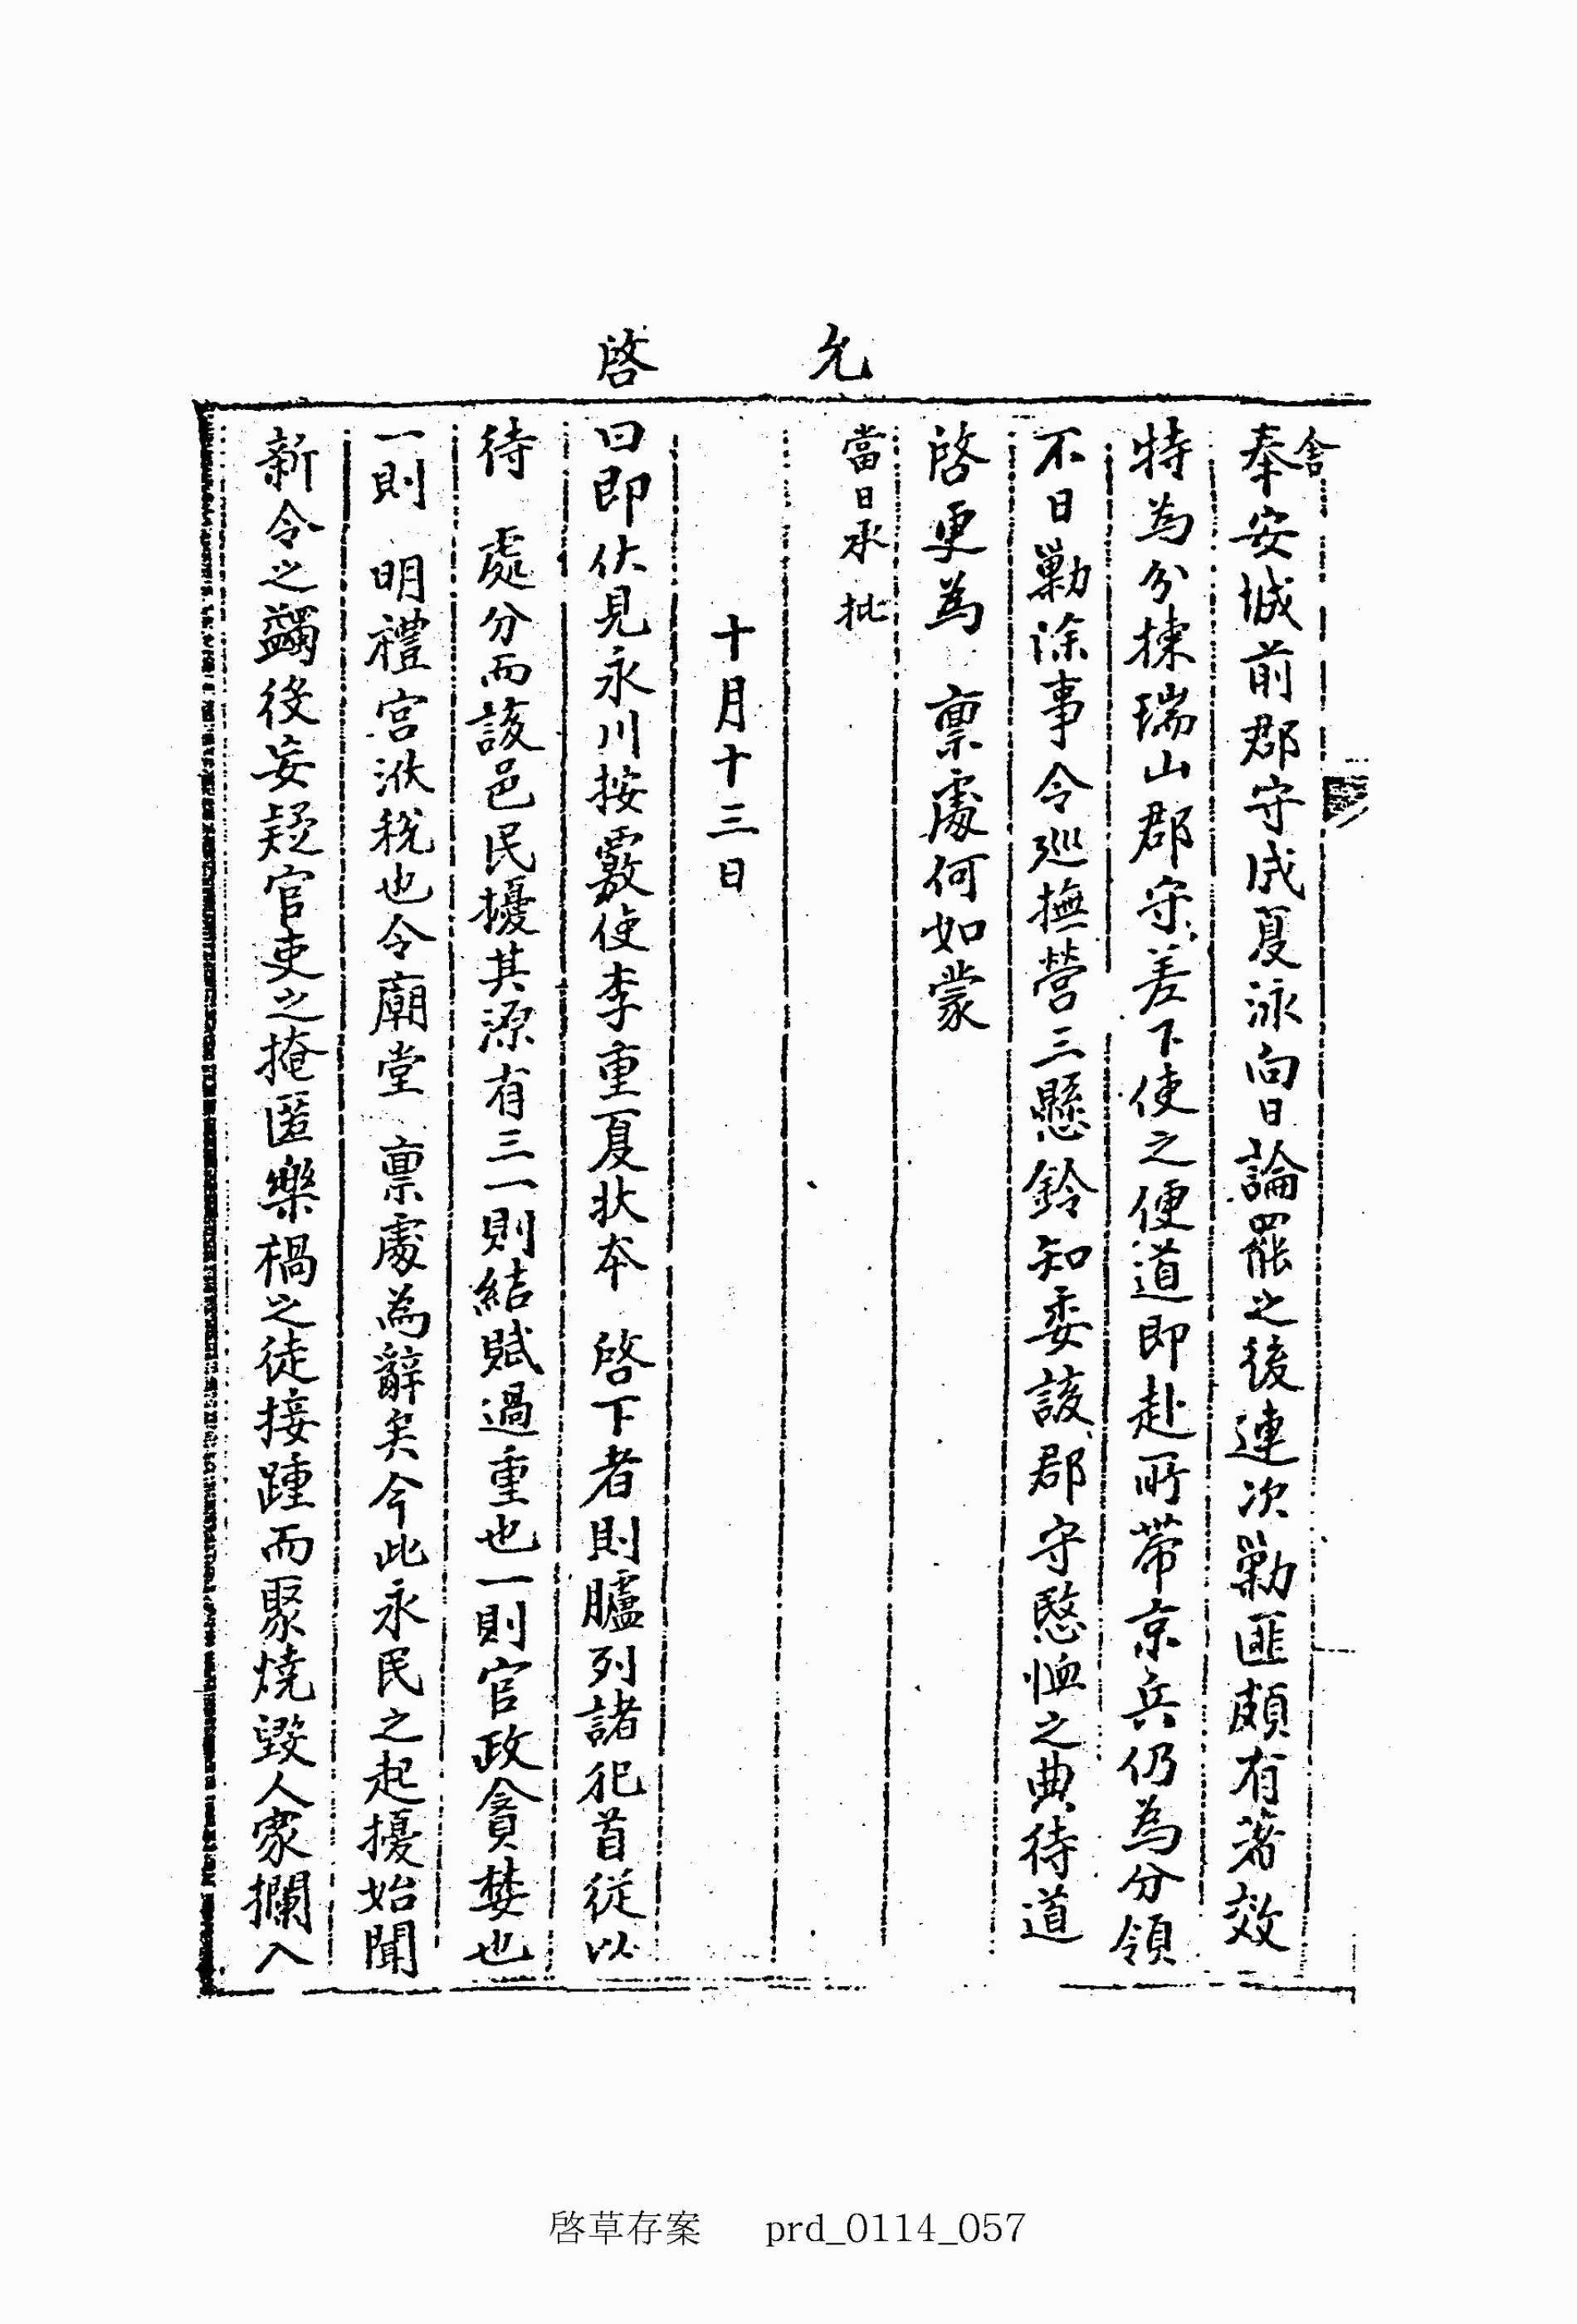 奉安城前郡守成夏泳向日論罷之後連次勦匪頗有著效
特為分揀瑞山郡守差下使之便道即赴所帶京兵仍為分領
不日勦除事令巡撫營三懸鈴知委該郡守愍恤之典待道
啓更為 稟處何如蒙
允
當日承 批
十月十三日
啓
曰即伏見永川按覈使李重夏狀本 啓下者則臚列諸犯首從以
待 處分而該邑民擾其源有三一則結賦過重也一則官政貪婪也
一則 明禮宮洑稅也令廟堂 稟處為辭矣今此永民之起擾始聞
新令之蠲役妄疑官吏之掩匿樂禍之徒接踵而聚燒毀人家攔入
啓草存案 prd_0114_057